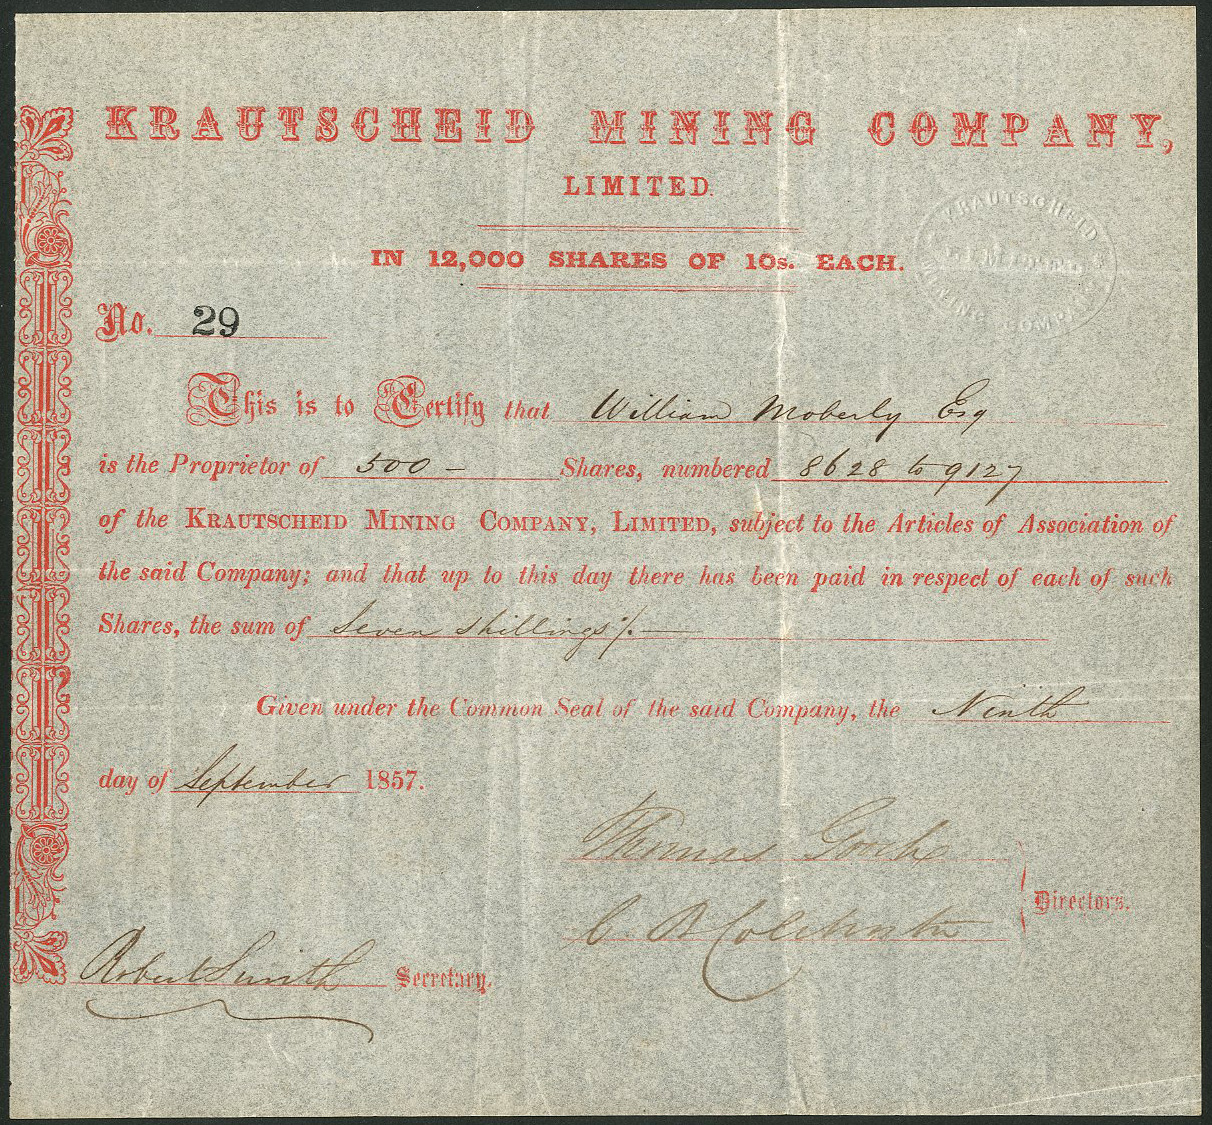 KRAUTSCHEID MINING COMPANY,
LIMITED.
IN 12,000 SHARES OF 10s. EACH.
KRAUTSCHEID
LIMITED
MINING COMPANY
No. 29
This is to Certify that William Moberly Esq
is the Proprietor of 500 – Shares, numbered 8628 to 9127
of the KRAUTSCHEID MINING COMPANY, LIMITED, subject to the Articles of Association of
the said Company; and that up to this day there has been paid in respect of each of such
Shares, the sum of Seven shillings /. —
Given under the Common Seal of the said Company, the Ninth
day of September 1857.
Thomas
C
Directors.
Robert Smith Secretary.